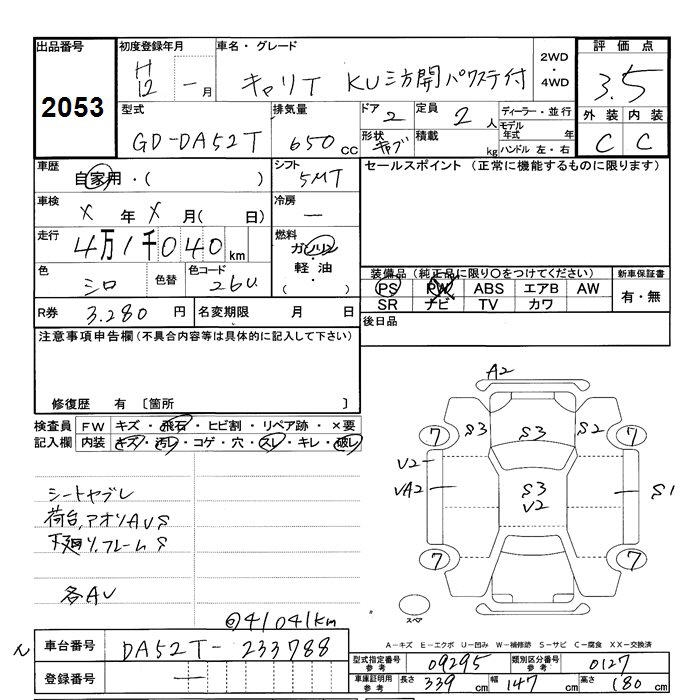 出品番号
2053
初度登録年月
H12 - 月
車名・グレード
キャリイ KU三方開パワステ付
2WD
・
4WD
評価点
3.5
外装 内装
C C
型式
GD-DA52T
排気量
650 cc
ドア
2
形状
キャブ
定員
2 人
積載
kg
ディーラー・並行
モデル年式 年
ハンドル 左・右
車歴
自家用・( )
シフト
5MT
車検
X 年 X 月( 日)
冷房
—
走行
4万1千040 km
燃料
ガソリン
軽油
( )
色
シロ
色替
色コード
26U
R券
3.280 円
名変期限 月 日
セールスポイント (正常に機能するものに限ります)
装備品(純正品に限り○をつけてください)
PS PW ABS エアB AW
SR ナビ TV カワ
新車保証書
有・無
後日品
注意事項申告欄(不具合内容等は具体的に記入して下さい)
修復歴 有 〔箇所 〕
検査員記入欄
FW キズ・飛石・ヒビ割・リペア跡・×要
内装 キズ・汚レ・コゲ・穴・スレ・キレ・破レ
シートヤブレ
荷台,アオリAUS
下廻り,フレームS
各AU
@41041km
A2
7 S3 S3 S2 7
U2
UA2
S3
U2
S1
7 7
スペア
A-キズ E-エクボ U-凹み W-補修跡 S-サビ C-腐食 XX-交換済
車台番号
DA52T-233788
登録番号
—
型式指定番号 参考
09295
類別区分番号 参考
0127
車庫証明用 参考
長さ 339 cm 幅 147 cm 高さ 180 cm